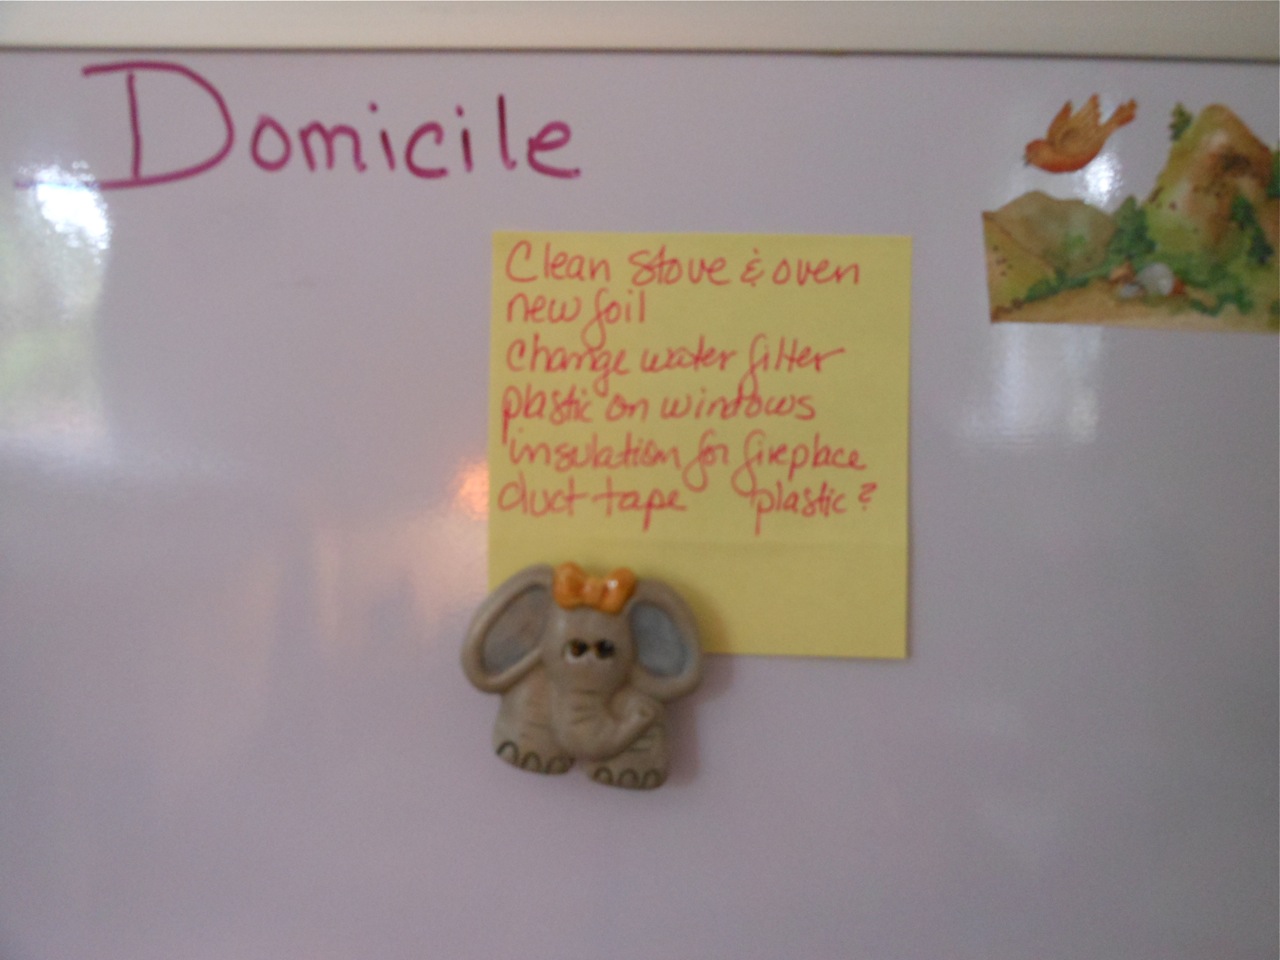 Domicile
Clean stove & oven
new foil
change water filter
plastic on windows
insulation for fireplace
duct tape plastic?